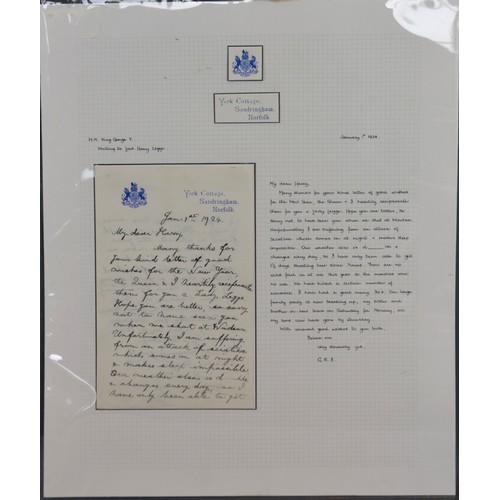 York Cottage,
Sandringham,
Norfolk
H.M. King George V.
Writing to Harry Legge.
January 1st 1924.
York Cottage,
Sandringham,
Norfolk.
Jan: 1st 1924.
My dear Harry
Many thanks for
your kind letter of good
wishes for the New Year,
the Queen & I heartily reciprocate
them for you & Lady Legge
Hope you are better, so sorry
not to have seen you
when we shot at Windsor
Unfortunately I am suffering
from an attack of sciatica
which comes on at night
& makes sleep impossible.
Our weather also is
& changes every day, so I
have only been able to get
My dear Harry,
Many thanks for your kind letter of good wishes
for the New Year, the Queen & I heartily reciprocate
them for you & Lady Legge. Hope you are better, so
sorry not to have seen you when we shot at Windsor.
Unfortunately I am suffering from an attack of
Sciatica which comes on at night & makes sleep
impossible. Our weather also is
changes every day, so I have only been able to get
days shooting since I came. There are no
wild
so. We have killed a certain number of
woodcock. I have had a good many
family party is now breaking up, my sister and
brother in law leave on Saturday for Norway, and
my sons will have gone by Saturday.
With renewed good wishes to you both,
Believe me
very sincerely yrs.
G.R.I.